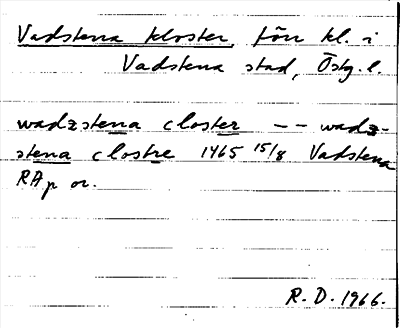 Vadstena kloster förr kl. i
Vadstena stad, Östg. l.
wadzstena closter -- wadz-
stena clostre 1465 15/8 Vadstena
RAp or.
R. D. 1966.